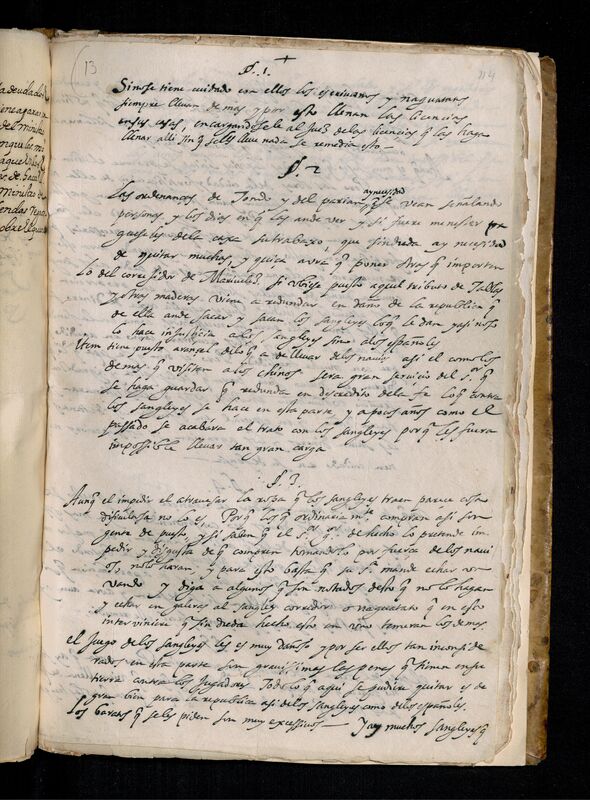 13
114
§. 1.
Sinose tiene cuidado con ellos los escrivanos y naguatatos
siempre llevan de mas y por esto llevan las licencias
en sus casas, encargandosele al Juez de las licencias q las haga
llevar alli sin q se lleve nada se remedia esto
§. 2
Las ordenanças de Tondo y del parian ay necesidad q se vean señalando
personas y los dias en q las ande ver y si fuere menester
de la caxa su trabaxo, que sin duda ay necesidad
de quitar muchas, y quiça avra q poner otras q importen
Lo del corregidor de Mariveles, si ubiese puesto aquel tributo de Tablas
y otras maderas viene a redundar en daño de la republica q
de ella ande sacar y sacan los sangleyes lo q le dan y asi no solo
lo haze injusticia a los sangleyes sino a los españoles
Item tiene puesto aranzel de lo q a de llevar de los navios asi el como los
demas q visitan a los chinos sera gran servicio del S.r q
se haga guardar q redunda en descredito de la fe lo q contra
los sangleyes se haze en esta parte, y a pocos años como el
passado se acabara el trato con los sangleyes porq les fuera
impossible llevar tan gran carga
§. 3.
Aunq el impedir el atravesar la ropa q los sangleyes traen parece cosa
dificultosa no lo es, Porq los q ordinaria m.te compran asi son
gente de puesto, y si saben q el S.r g.or de hecho lo pretende im
pedir y disgusta de q compren tomandolo por fuerça de los navi
os, no lo haran, y para esto basta q su S.a mande echar un
vando y diga a algunos q son notados desto q no lo hagan
y echar en galeras al sangley corredor o naguatato q en esto
interviniere q sin duda hecho esto en uno temeran los demas
el Juego de los sangleyes les es muy dañoso y por ser ellos tan inconside
rados en esta parte son gravissimas las penas q tienen en su
tierra contra los Jugadores Todo lo q aqui se pudiere quitar es de
gran bien para la republica asi de los sangleyes como de los españoles.
Los baratos q se les piden son muy excessivos — Y ay muchos sangleyes q